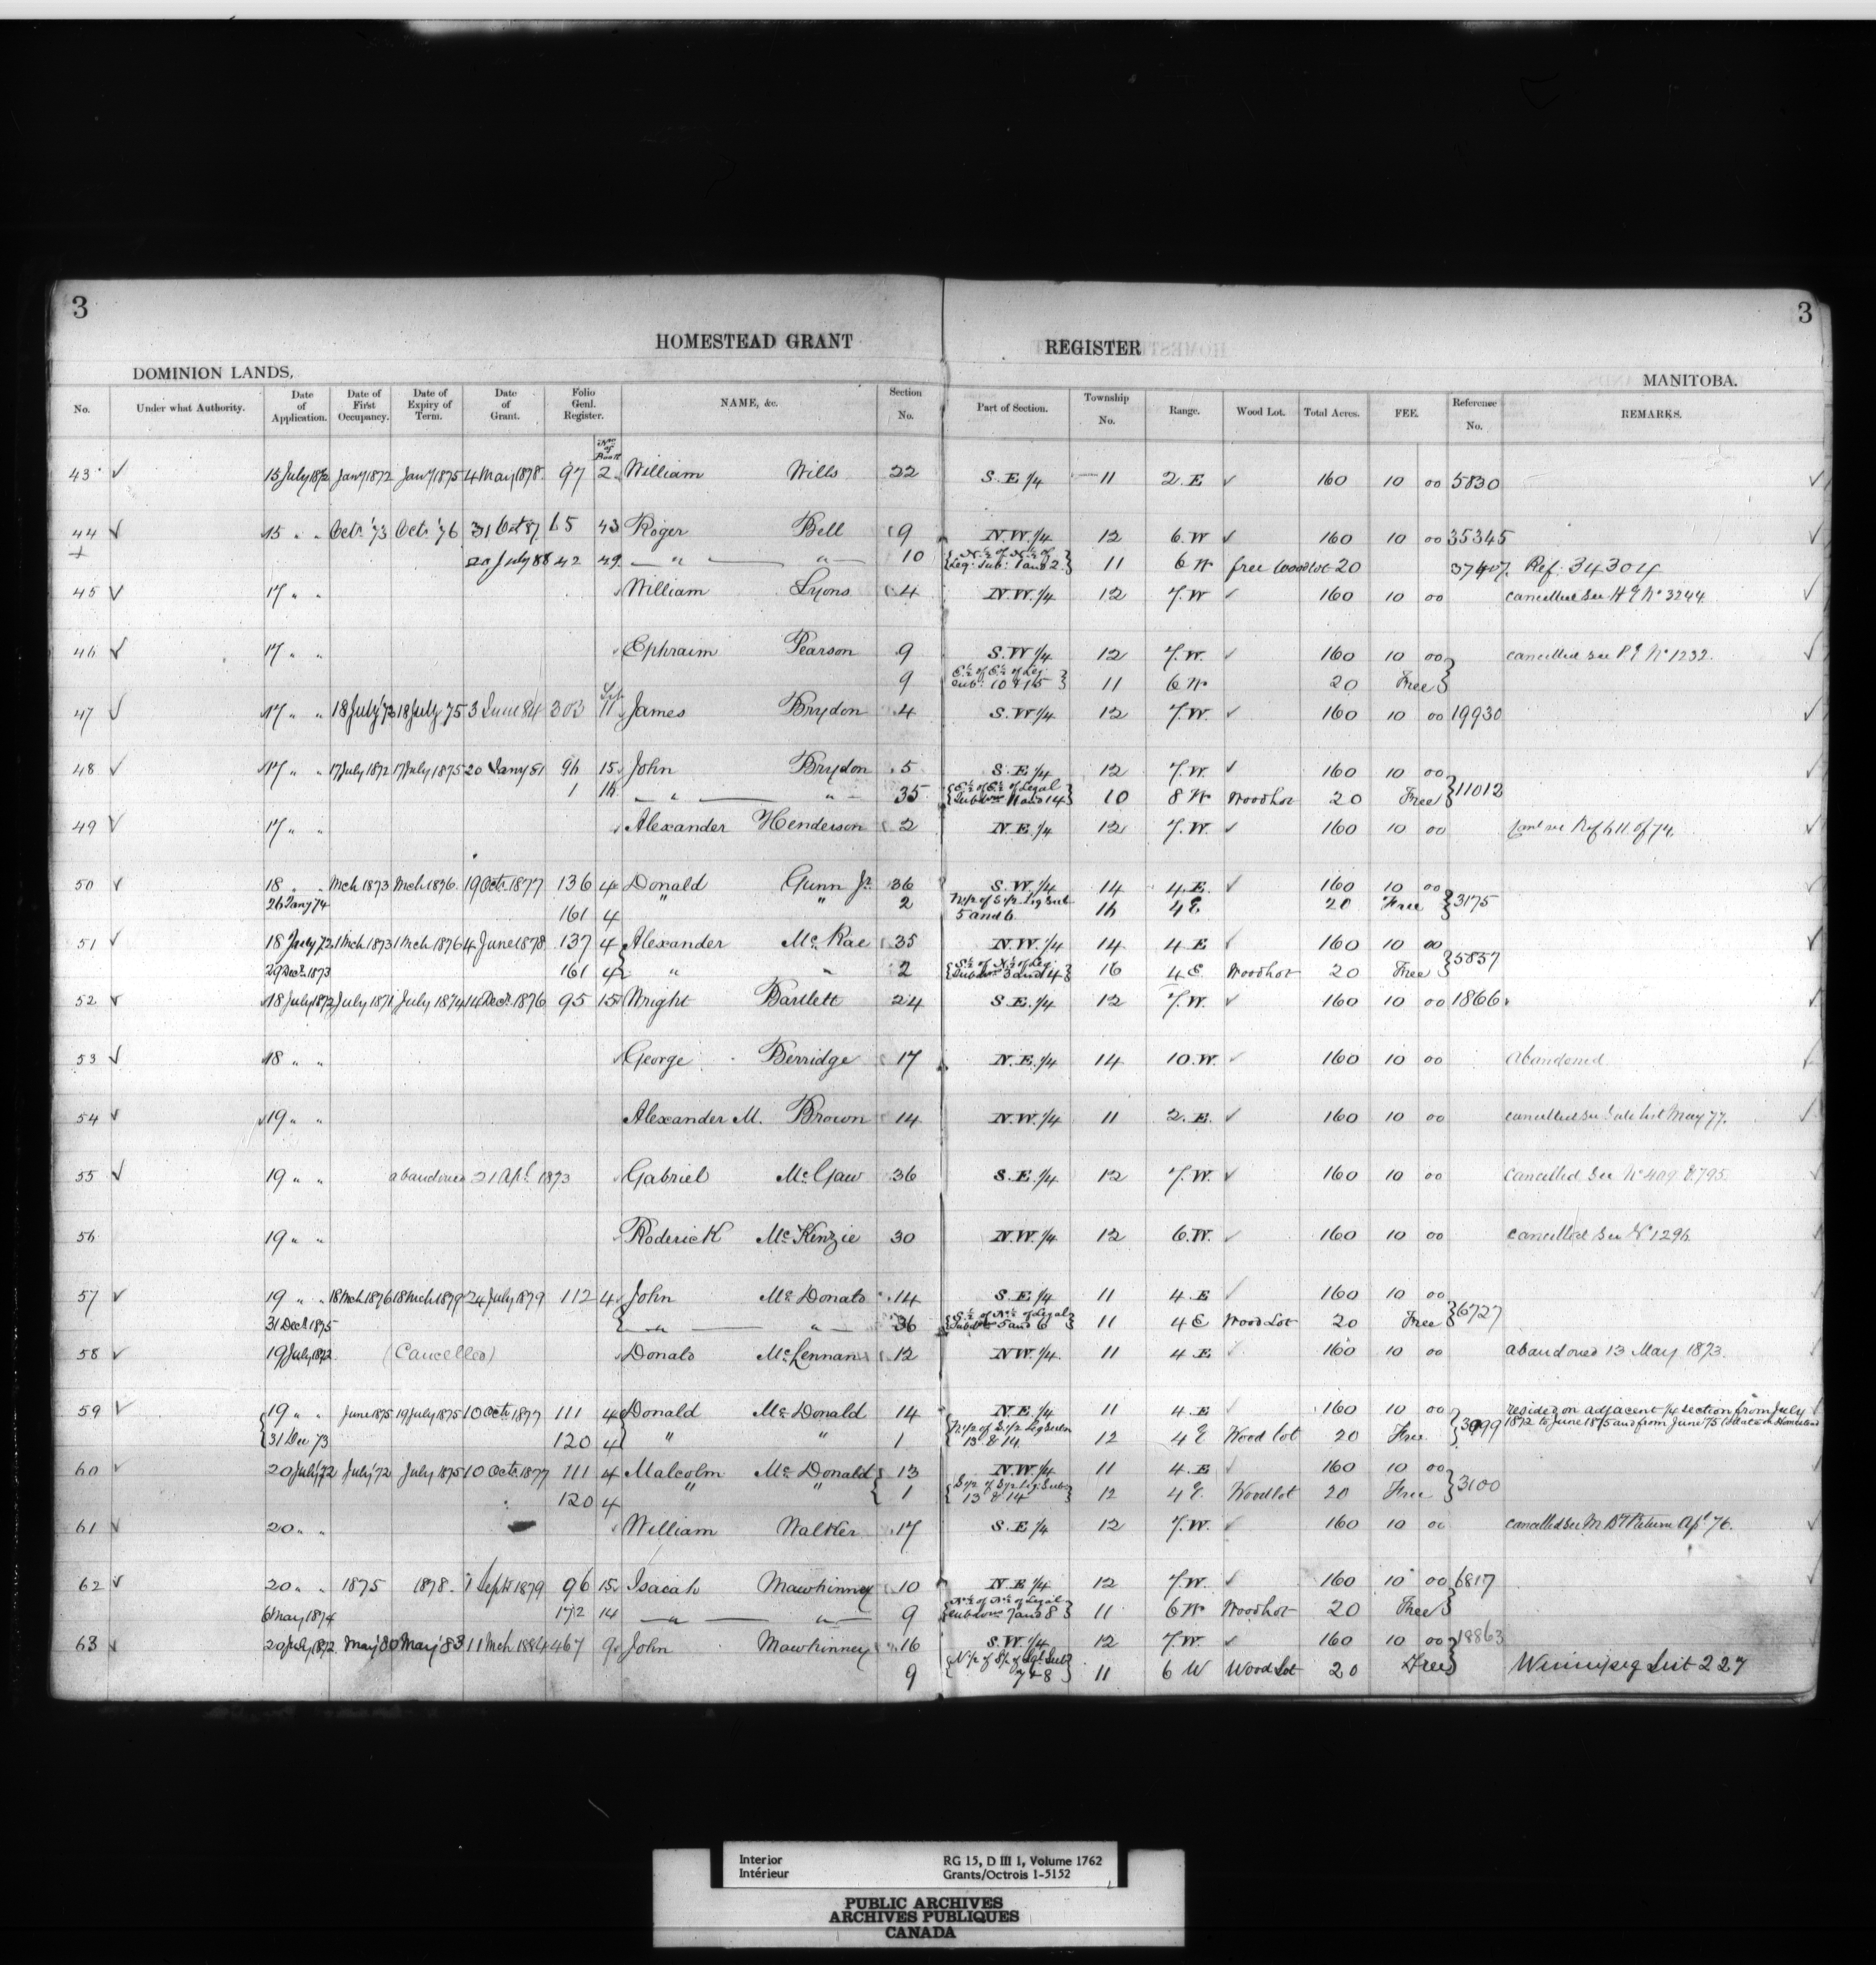 3
3
HOMESTEAD GRANT REGISTER
DOMINION LANDS, MANITOBA.
No. Under what Authority. Date of Application. Date of First Occupancy. Date of Expiry of Term. Date of Grant. Folio Genl. Register. NAME, &c. Section No. Part of Section. Township No. Range. Wood Lot. Total Acres. FEE. Reference No. REMARKS.
No of Book
43 ✓ 15 July 1872 Jany 1872 Jany 1875 4 May 1878 97 2 William Wills 22 S.E.1/4 11 2.E ✓ 160 10 00 5830 ✓
44 ✓ 15 " " Octr '73 Octr '76 31 Oct 87 65 43 Roger Bell 9 N.W.1/4 12 6.W ✓ 160 10 00 35345
+ 20 July 88 42 49 " " 10 {N½ of N½ of Leg. Sub. 1 and 2} 11 6 W free Woodlot 20 37407. Ref. 34304
45 ✓ 17 " " William Lyons 4 N.W.1/4 12 7.W ✓ 160 10 00 cancelled See H G No 3244 ✓
46 ✓ 17 " " Ephraim Pearson 9 S.W 1/4 12 7.W. ✓ 160 10 00 cancelled See P.E No 1232. ✓
9 E½ of E½ of Leg. Sub. 10 & 15 } 11 6 W 20 Free
47 ✓ 17 " " 18 July '72 18 July 75 3 June 84 303 11 James Brydon 4 S.W 1/4 12 7.W. ✓ 160 10 00 19930 ✓
48 ✓ 17 " " 17 July 1872 17 July 1875 20 Jany 81 96 15 John Brydon 5 S.E 1/4 12 7.W. ✓ 160 10 00 ✓
1 16 " " 35 {E½ of E½ of Legal Subdons 11 and 14} 10 8 W Wood Lot 20 Free } 11012
49 ✓ 17 " " Alexander Henderson 2 N.E.1/4 12 7.W. ✓ 160 10 00 Canl see Ref 611 of 74 ✓
50 ✓ 18 " " Mch 1873 Mch 1876. 19 Octr 1877 136 4 Donald Gunn Jr. 36 S.W.1/4 14 4.E. ✓ 160 10 00
26 Jany 74 161 4 " " 2 N1/2 of S1/2 Leg Sub 5 and 6 16 4 E 20 Free } 3175
51 ✓ 18 July 72 1 Mch 1873 1 Mch 1876 4 June 1878 137 4 Alexander McRae 35 N.W.1/4 14 4 E ✓ 160 10 00 ✓
29 Decr 1873 161 4 " " 2 {S½ of N½ of Leg. Subdons 3 and 4} 16 4 E. Wood Lot 20 Free } 5857
52 ✓ 18 July 1872 July 1871 July 1874 14 Decr 1876 95 15 Wright Bartlett 24 S.E.1/4 12 7.W. ✓ 160 10 00 1866 ✓
53 ✓ 18 " " George Berridge 17 N.E.1/4 14 10.W. ✓ 160 10 00 Abandoned ✓
54 ✓ 19 " " Alexander M. Brown 14 N.W.1/4 11 2.E. ✓ 160 10 00 cancelled see Sale list May 77. ✓
55 ✓ 19 " " abandoned 21 Apl 1873 Gabriel McGaw 36 S.E.1/4 12 7.W. ✓ 160 10 00 Cancelled See No 409 & 795. ✓
56 19 " " Roderick McKenzie 30 N.W.1/4 12 6.W. ✓ 160 10 00 cancelled See No 1296 ✓
57 ✓ 19 " " 18 Mch 1876 18 Mch 1879 24 July 1879 112 4 John McDonald 14 S.E 1/4 11 4.E ✓ 160 10 00
31 Decr 1875 " " 36 {S½ of N½ of Legal Subdons 5 and 6} 11 4 E Wood Lot 20 Free } 6727
58 ✓ 19 July 1872 (Cancelled) Donald McLennan 12 N.W 1/4. 11 4 E ✓ 160 10 00 abandoned 13 May 1873. ✓
59 ✓ 19 " " June 1875 19 July 1875 10 Octr 1877 111 4 Donald McDonald 14 N.E.1/4 11 4.E ✓ 160 10 00 resided on adjacent 1/4 section from July ✓
31 Dec 73 120 4 " " 1 N1/2 of S1/2 Leg Subn 13 & 14 12 4 E Wood lot 20 Free } 3099 1872 to June 1875 and from June '75 to date on Homestead
60 ✓ 20 July '72 July '72 July 1875 10 Octr 1877 111 4 Malcolm McDonald 13 N.W.1/4 11 4.E ✓ 160 10 00 ✓
120 4 " " 1 {S1/2 of S1/2 Leg. Subs 13 & 14} 12 4 E. Woodlot 20 Free } 3100
61 ✓ 20 " " William Walker 17 S.E 1/4 12 7.W. ✓ 160 10 00 cancelled See Return Apl 76. ✓
62 ✓ 20 " " 1875 1878. 1 Sept 1879 96 15 Isaiah Mawhinney 10 N.E 1/4 12 7.W. ✓ 160 10 00 6817 ✓
6 May 1874 172 14 " " 9 {N½ of N½ of Legal Subdons 7 and 8} 11 6 W Wood Lot 20 Free
63 ✓ 20 July 1872. May '80 May '83 11 Mch 1884 467 9 John Mawhinney 16 S.W.1/4 12 7.W. ✓ 160 10 00 18863
9 {N1/2 of S1/2 of Lgl Subs 7 & 8} 11 6 W Wood Lot 20 Free Winnipeg List 227
Interior RG 15, D III 1, Volume 1762
Intérieur Grants/Octrois 1-5152
PUBLIC ARCHIVES
ARCHIVES PUBLIQUES
CANADA